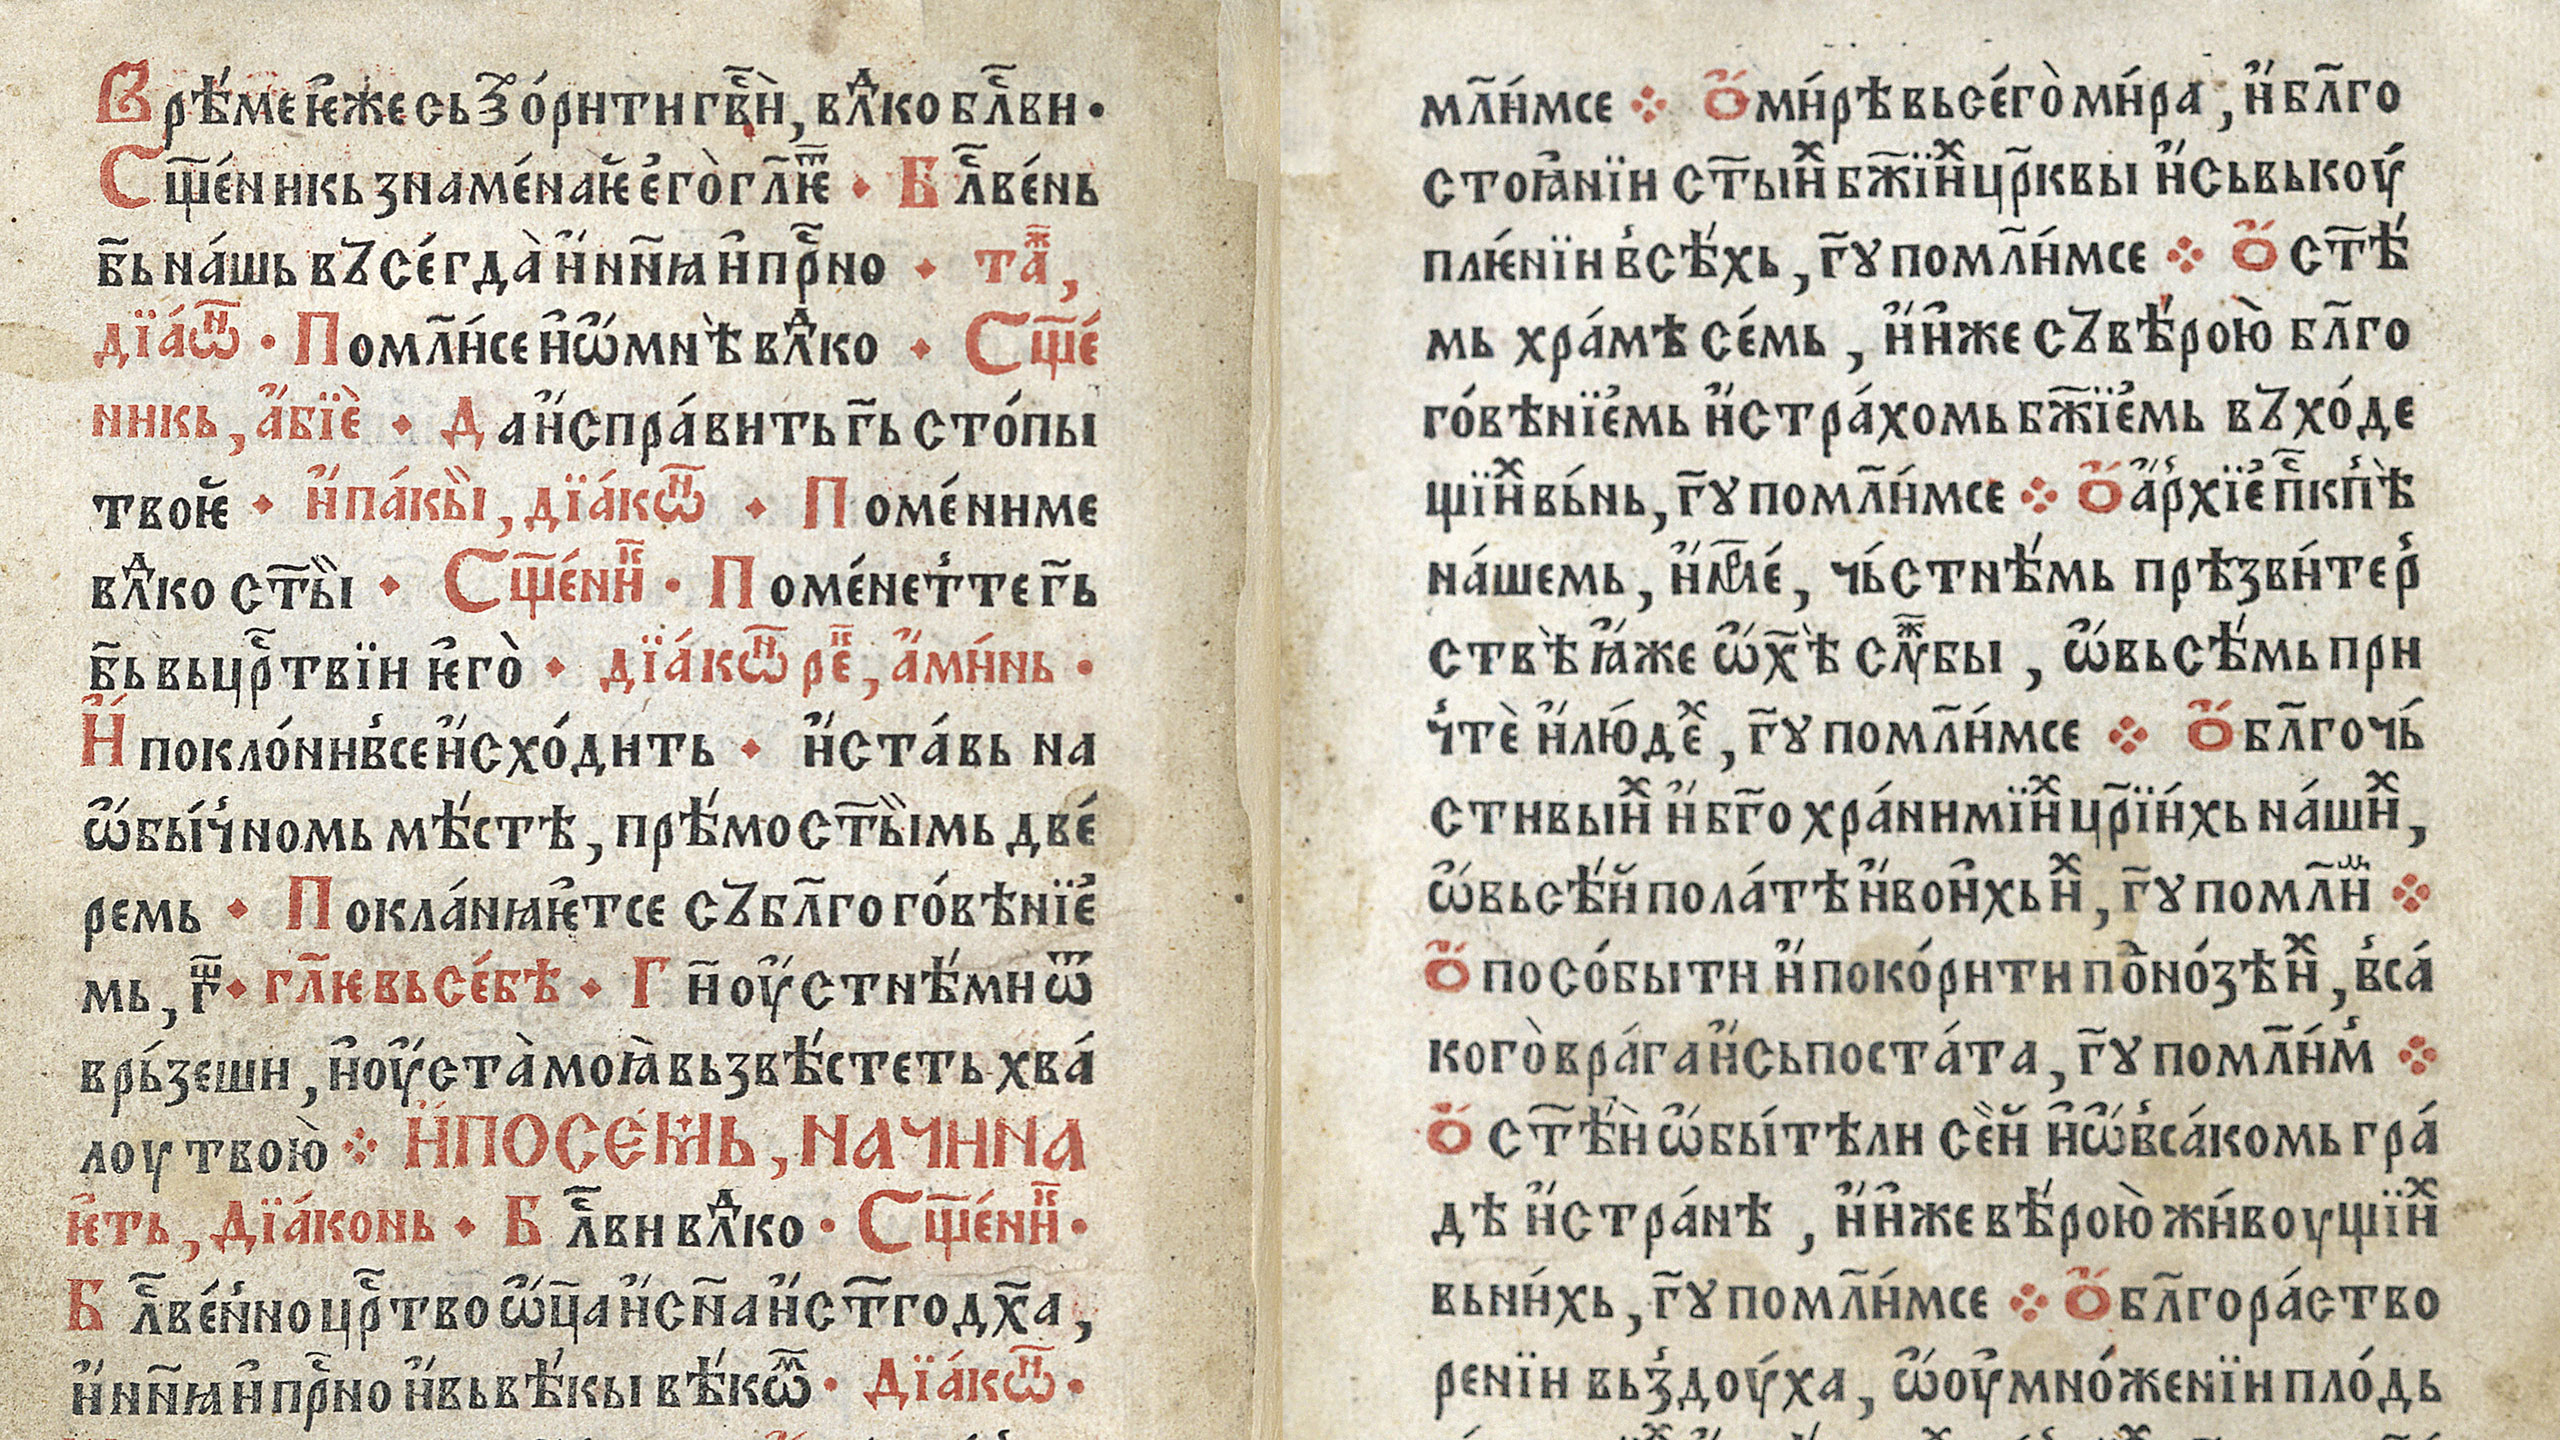 Врѣ́ме ѥ҆́же сьꙁо́рити гв҇ѝ, влⷣко бл҇ви ·
Сщ҃е́никь знаме́наѥ̆ є҆го̀ гл҃ѥⷮ · Бл҇ве́нь
б҃ь на́шь въ се́гда̀ и҆́ нн҃ꙗ и҆ пр҇но · таⷤ,
дїа́ѡⷩ҇ · Помл҃и́се и҆ ѡ҆́ мнѣ̀ влⷣко · Сщ҃е́
никь, а҆́бїѐ · Да и҆́справить г҃ь сто́пы
твоѥ̆ · и҆́ па́кы̀, дїа́кѡⷩ҇ · Поме́ниме
влⷣко ст҃ы̀ · Сщ҃е́ниⷦ҇ · Поме́неть те г҃ь
б҃ь вь цр҇твїи ѥ҆го̀ · дїа́кѡⷩ҇ реⷱ҇, а҆ми́нь ·
И҆́ покло́нивсе и҆́схо́дить · и҆́ ста́вь на
ѡ҆́бы́чномь мѣ́стѣ, прѣ́мо ст҃ы̀мь две́
ремь · Покла́нꙗѥ҆тсе съ бл҃гого́вѣнїє҆
мь, г҃ⷳ · гл҃ѥ вь се́бѣ · Гн҃ оу҆́стнѣ́ми ѿ
врь́зеши, и҆ оу҆́ста̀ моꙗ̀ вьзвѣ́стеть хва́
лоу твою̀ ⁘ И҆́ по се́мь, начина
ѥ҆ть, дїа́конь · Бл҇ви влⷣко · Сщ҃е́ниⷦ҇ ·
Бл҇ве́нно цр҇тво ѡ҆́ц҃а и҆́ сн҃а и҆́ ст҃го дх҃а,
и҆́ нн҃ꙗ и҆ пр҇но и҆́ вь вѣ́кы вѣ́кѡⷡ҇ · Дїа́кѡⷩ҇ ·
мл҃и́мсе ⁘ Ѻ҆́ ми́рѣ вьсе́го̀ ми́ра, и҆́ бл҃го
стоꙗ҆нїи ст҃ыиⷯ бж҃їиⷯ цр҃квы и҆́ сьвькоу́
плѥ́нїи всѣ́хь, г҃ꙋ помл҃и́мсе ⁘ Ѻ҆́ ст҃ѣ́
мь хра́мѣ се́мь, и҆́ и҆́же съ вѣ́рою̀ бл҃го
го́вѣнїє҆мь и҆́ стра́хомь бж҃їє҆мь въхо́де
щїиⷯ вь́нь, г҃ꙋ помл҃и́мсе ⁘ Ѻ҆́ а҆́рхїє҆пⷭ҇кпѣ̀
на́шемь, и҆м҃ⷬе́, чь́стнѣ́мь прѣзви́тер
ствѣ̀ ꙗ҆́же ѡ҆́ х҃ѣ̀ слꙋⷤбы, ѡ҆́ вьсѣ́мь при
чтѐ и҆́ лю́деⷯ, г҃ꙋ помл҃и́мсе ⁘ Ѻ҆́ бл҃гочь́
стивыиⷯ и҆́ бг҃охра́нимїиⷯ цр҃їи́хь на́шиⷯ,
ѡ҆́ вьсѣ́й пола́тѣ и҆́ вои҆хь иⷯ, г҃ꙋ помл҃иⷨ ⁘
Ѻ҆́ посо́быти и҆́ поко́рити пѡно́зѣ иⷯ, вса́
кого̀ вра́га и҆́ сьпоста́та, г҃ꙋ помл҃и́м ⁘
Ѻ҆́ ст҃ѣ́и ѡ҆́бы́тѣли се̏й и҆ ѡ҆́ вса́комь гра́
дѣ и҆́ стра́нѣ, и҆́ и҆́же вѣ́рою̀ жи́воущїиⷯ
вьни́хь, г҃ꙋ помл҃и́мсе ⁘ Ѻ҆́ бл҃гора́ство
ренїи вьздоу́ха, ѡ҆́ оу҆мно́женїи пло́дь